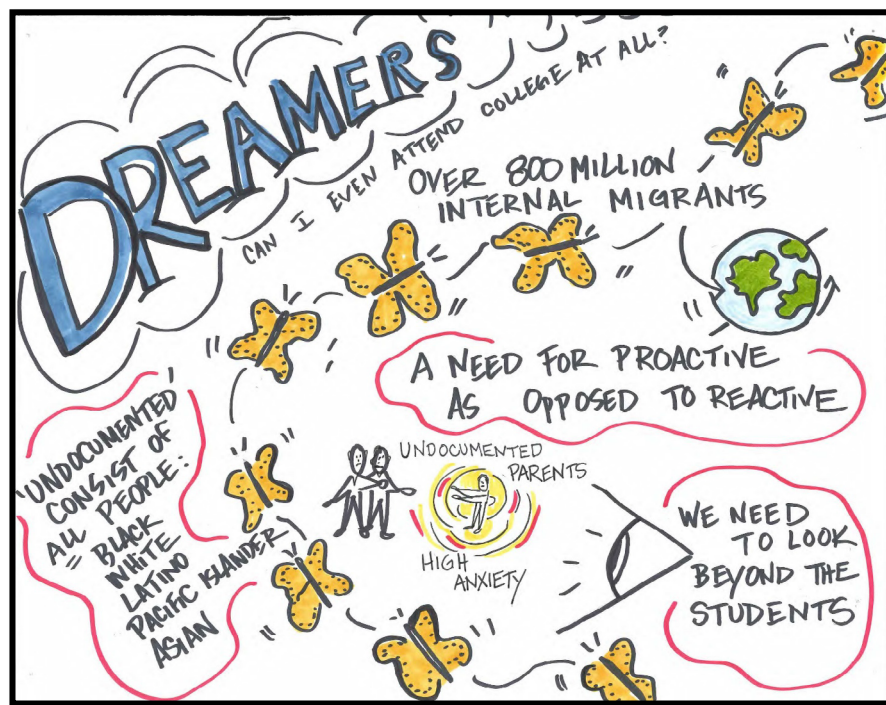 DREAMERS
CAN I EVEN ATTEND COLLEGE AT ALL?
OVER 800 MILLION
INTERNAL MIGRANTS
A NEED FOR PROACTIVE
AS OPPOSED TO REACTIVE
'UNDOCUMENTED'
CONSIST OF
ALL PEOPLE:
BLACK
WHITE
LATINO
PACIFIC ISLANDER
ASIAN
UNDOCUMENTED
PARENTS
HIGH
ANXIETY
WE NEED
TO LOOK
BEYOND THE
STUDENTS